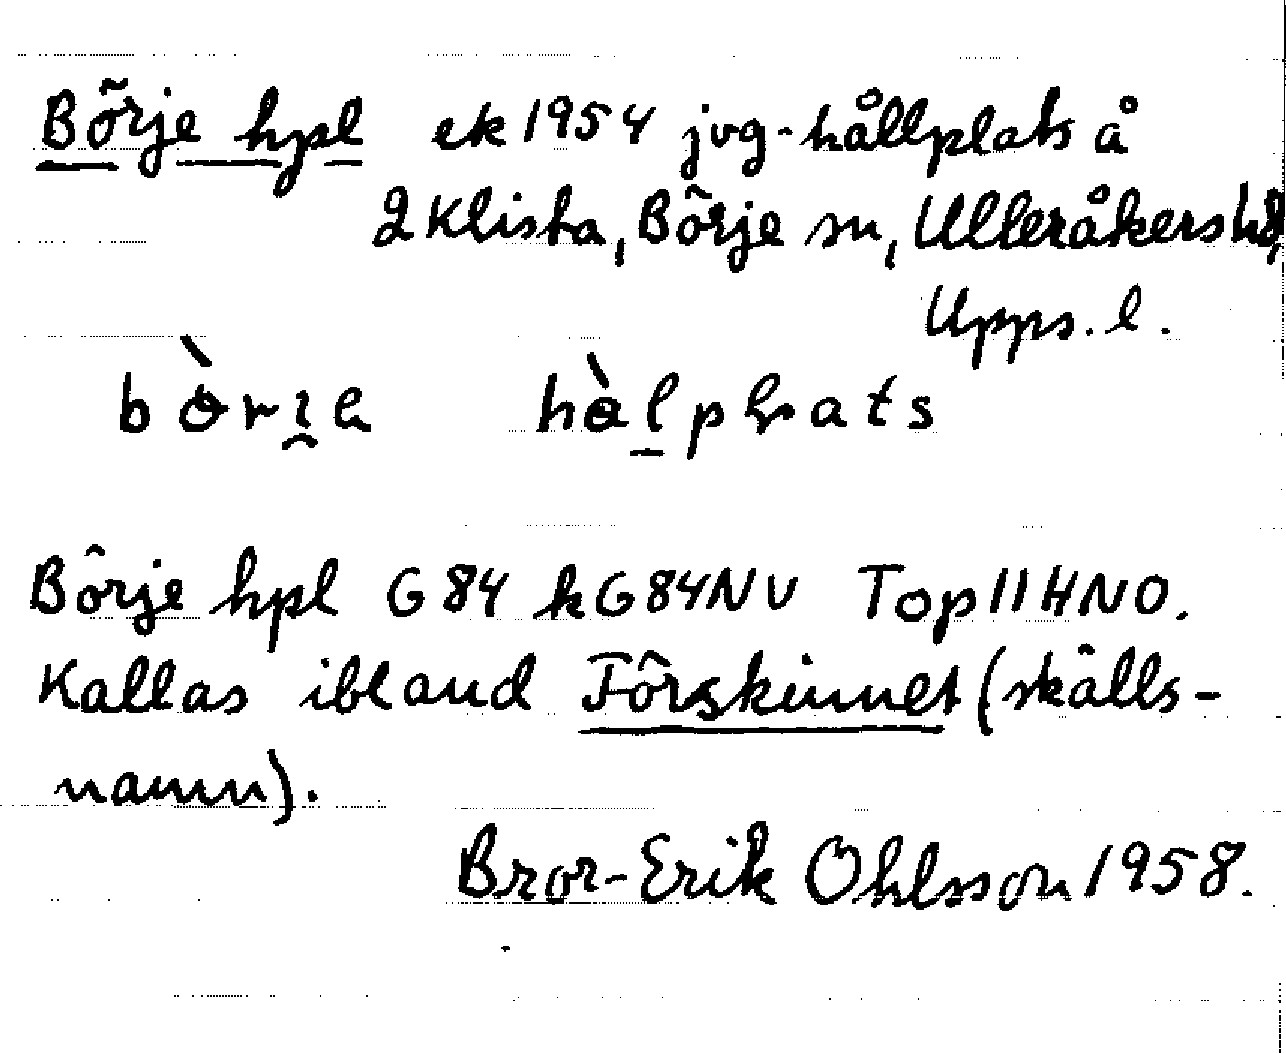 Börje hpl ek 1954 jvg-hållplats å
2 Klista, Börje sn, Ulleråkers hd,
Upps. l.
Börje hpl G 84 kG84NV Top 11HNO.
Kallas ibland Förskinnet (skälls-
namn).
Bror-Erik Ohlsson 1958.